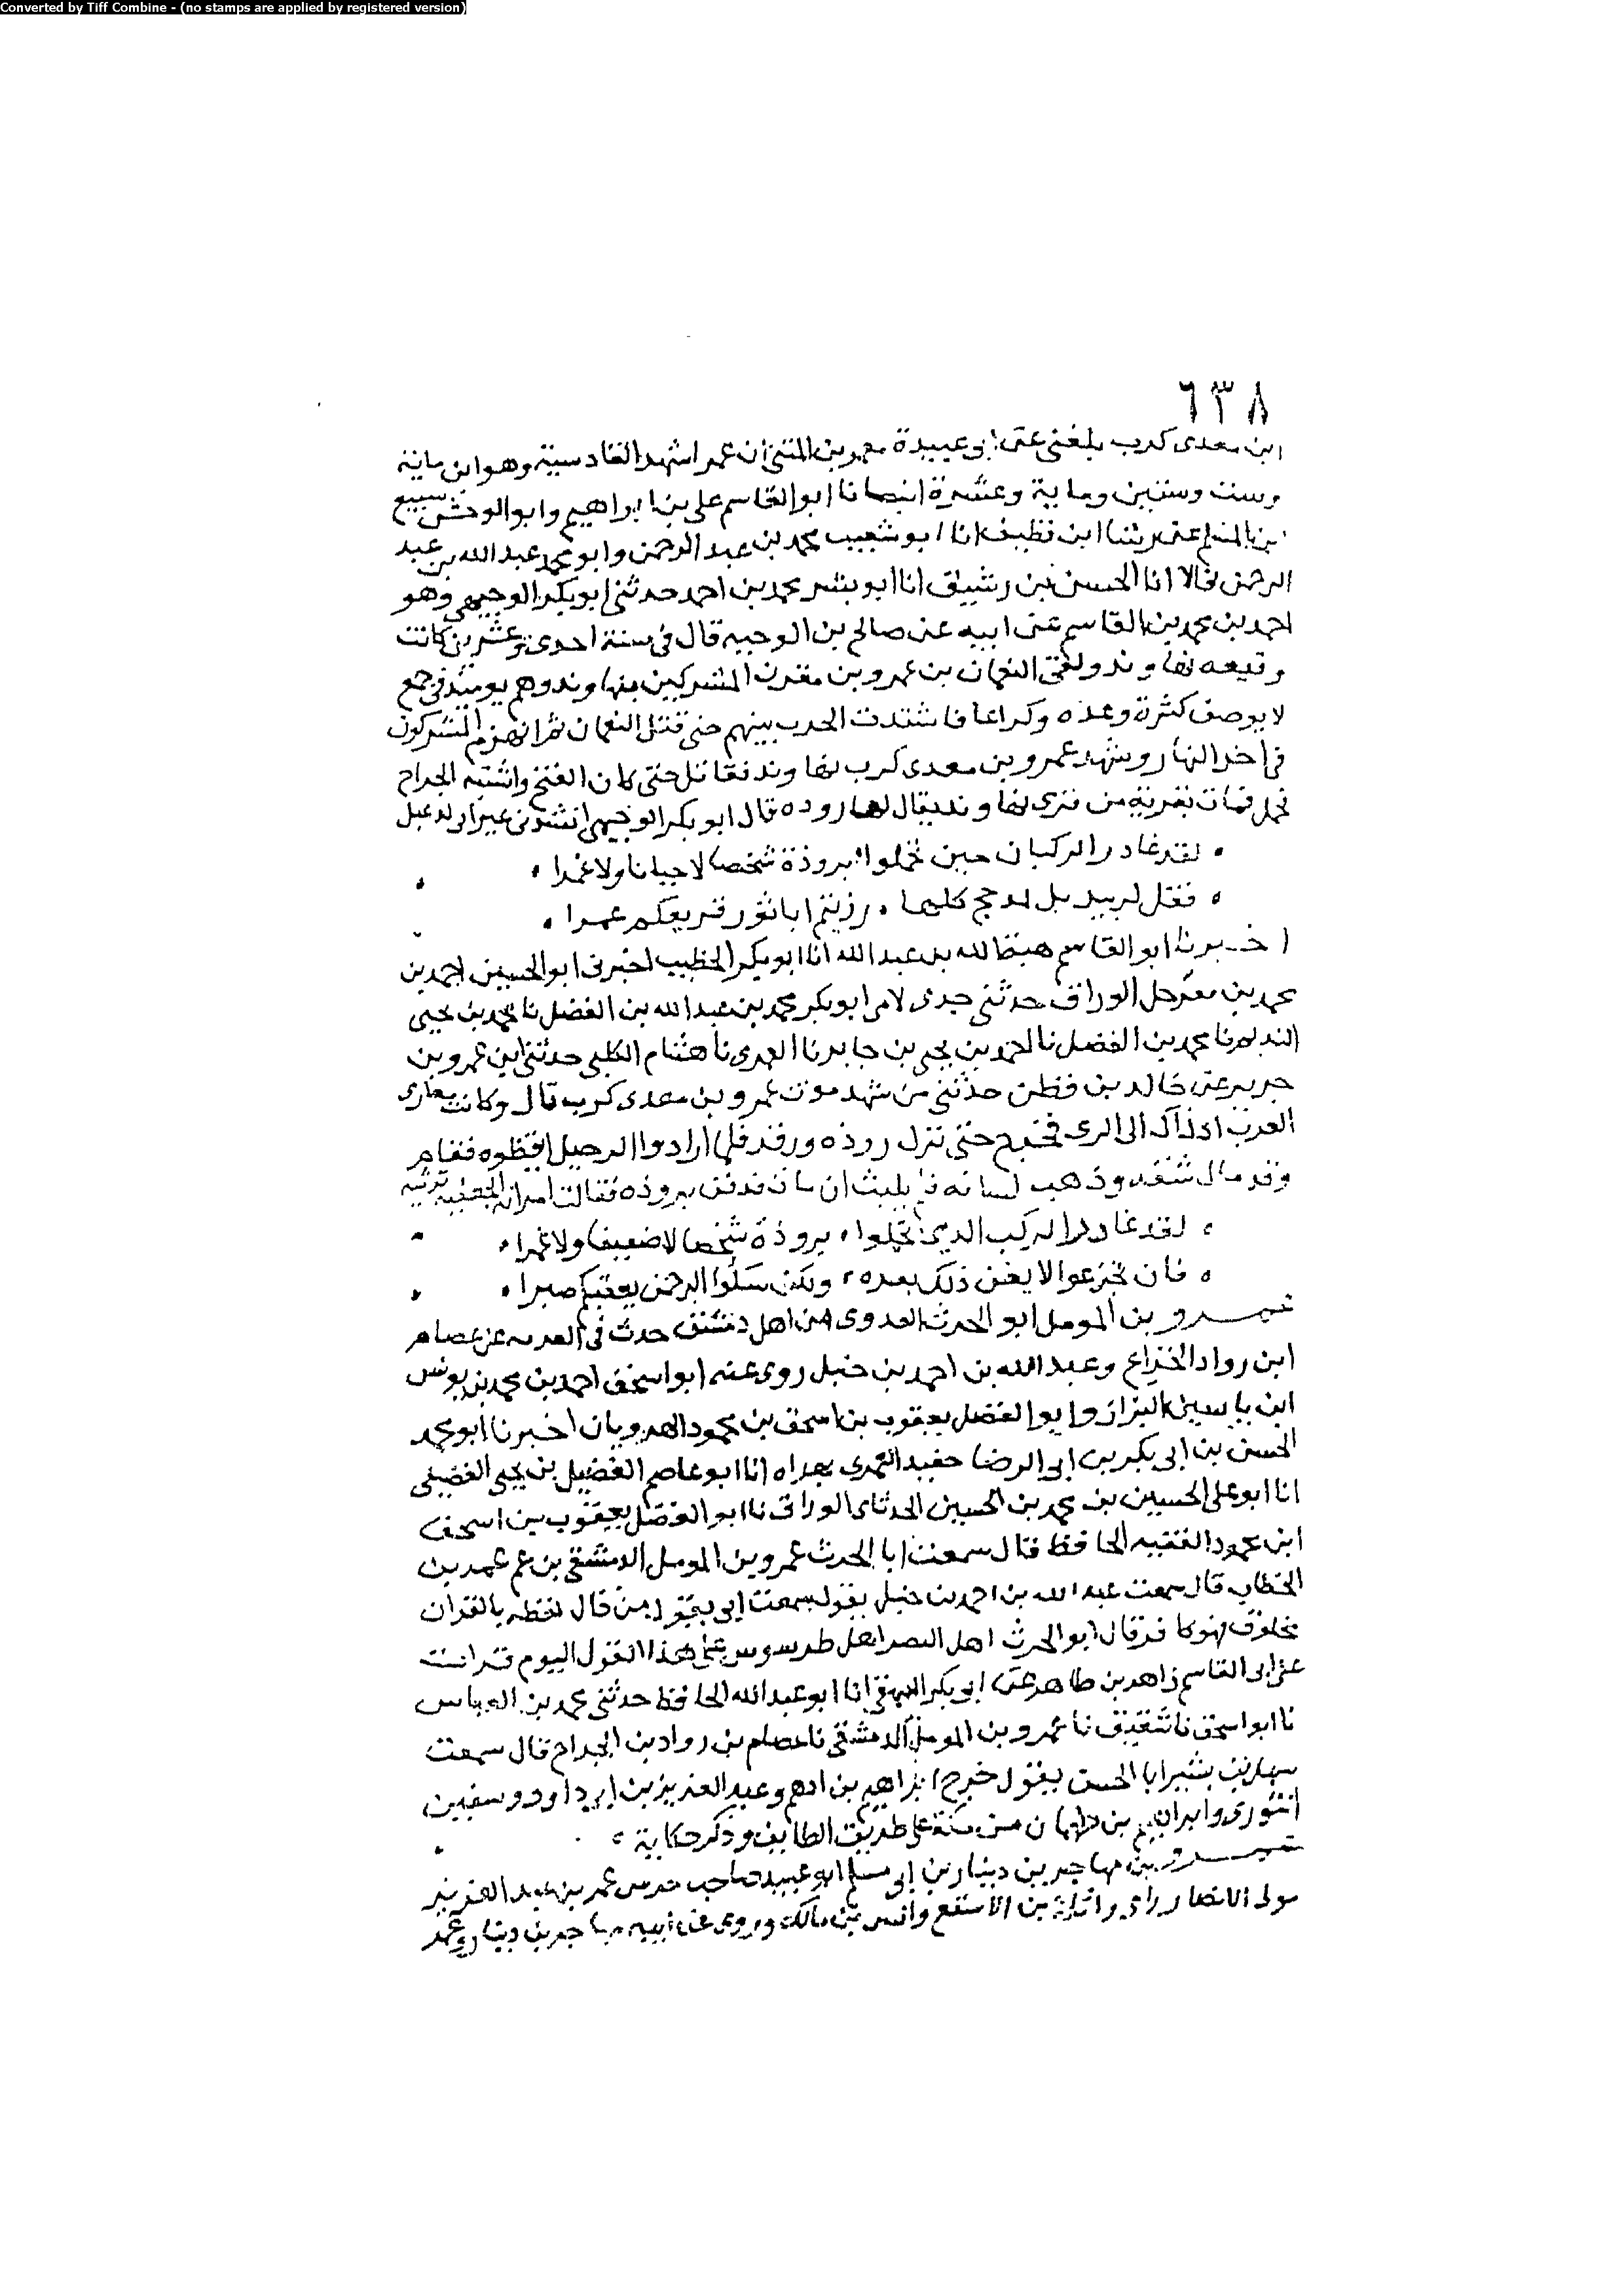 Converted by Tiff Combine - (no stamps are applied by registered version)
٦٣٨
ابن معدى كرب بلغنى عن ابى عبيدة معمر بن المثنى ان عمرا شهد القادسية وهو ابن ماية
وست وستين وماية وعشرة انبانا ابو القاسم على بن ابراهيم وابو الوحش سبيع
بن المسلم عن رشا ابن نظيف انا ابو شعيب محمد بن عبد الرحمن وابو محمد عبد الله بن عبد
الرحمن قالا انا الحسن بن رشيق انا ابو بشر محمد بن احمد حدثنى ابو بكر الوجيهى وهو
احمد بن محمد بن القاسم عن ابيه عن صالح بن الوجيه قال فى سنة احدى وعشرين كانت
وقيعه نهاوند ولقى النعمان بن عمرو بن مقرن المشركين بنهاوند وهم يوميذ فى جمع
لا يوصف كثرة وعده وكراعا فاشتدت الحرب بينهم حتى قتل النعمان ثم انهزم المشركون
فى اخر النهار وشهد عمرو بن معدى كرب نهاوند فقاتل حتى كان الفتح واثبته الجراح
فحمل فمات بقرية من قرى نهاوند يقال لها روده قال ابو بكر الوجيهى انشدنى غيرابى لدعبل
لقد غادر الركبان حين تحملوا بروذة شخصا لا جبانا ولا غمرا
فقل لزبيد بل لمدحج كلها رزيتم ابا ثور قريعكم عمرا
اخبرنا ابو القاسم هبة الله بن عبد الله انا ابو بكر الخطيب اخبرنى ابو الحسين احمد بن
محمد بن الوراق حدثنى جدى لامى ابو بكر محمد بن عبد الله بن الفضل نا محمد بن يحيى
النديم نا محمد بن الفضل نا احمد بن يحيى بن جابر نا العمرى نا هشام الكلبى حدثنى ابن عمرو بن
جرير عن خالد بن قطن حدثنى من شهد موت عمرو بن معدى كرب قال وكانت مغازى
العرب اذ ذاك الى الرى فخرج حتى نزل روذه ورقد فلما ارادوا الرحيل ايقظوه فقام
وقد مال شقه وذهب لسانه فلم يلبث ان مات فدفن بروذه فقالت امراته الجعفية ترثيه
لقد غادر الركب الذين تحملوا بروذة شخصا لا ضعيفا ولا غمرا
فان تجزعوا لا يغن ذلك بعده ولكن سلوا الرحمن يعقبكم صبرا
عمرو بن المومل ابو الحرث العدوى من اهل دمشق حدث فى عن عصام
ابن رواد الجراح وعبد الله بن احمد بن حنبل روى عنه ابو اسحق احمد بن محمد بن يونس
ابن ياسين البزاز وابو الفضل يعقوب بن اسحق بن محمود الهرويان اخبرنا ابو محمد
الحسن بن ابى بكر بن ابى الرضا حفيد العميرى بهراه انا ابو عاصم الفضيل بن يحيى الفضيلى
انا ابو على الحسين بن محمد بن الحسين الوراق نا ابو الفضل يعقوب بن اسحق
ابن محمود الفقيه الحافظ قال سمعت ابا الحرث عمرو بن المومل الدمشقى بن عم عمر بن
الخطاب قال سمعت عبد الله بن احمد بن حنبل يقول سمعت ابى يقول من قال لفظه بالقران
مخلوق فهو كافر قال ابو الحرث اهل طرسوس على هذا القول اليوم قرات
على ابى القاسم زاهر بن طاهر عن ابى بكر البيهقى انا ابو عبد الله الحافظ حدثنى محمد بن العباس
نا ابو اسحق نا عمرو بن المومل الدمشقى نا عصام بن رواد بن الجراح قال سمعت
سهل بن بشير ابا الحسن يقول خرج ابراهيم بن ادهم وعبد العزيز بن ابى داود وسفين
الثورى وابراهيم بن طهمان من مكة على طريق الطايف وذكر حكاية
عمرو بن مهاجر بن دينار بن ابى مسلم ابو عبيد صاحب حرس عمر بن عبد العزيز
مولى الانصار راى واثلة بن الاسقع وانس بن مالك وروى عن ابيه مهاجر بن دينار وعمر